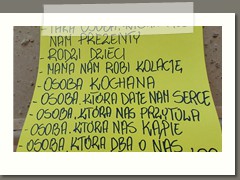 NAM PREZENTY
- RODZI DZIECI
- MAMA NAM ROBI KOLACJĘ
- OSOBA KOCHANA
- OSOBA, KTÓRA DAŁE NAM SERCE
- OSOBA, KTÓRA NAS PRZYTULA
- OSOBA, KTÓRA NAS KĄPIE
- OSOBA, KTÓRA DBA O NAS